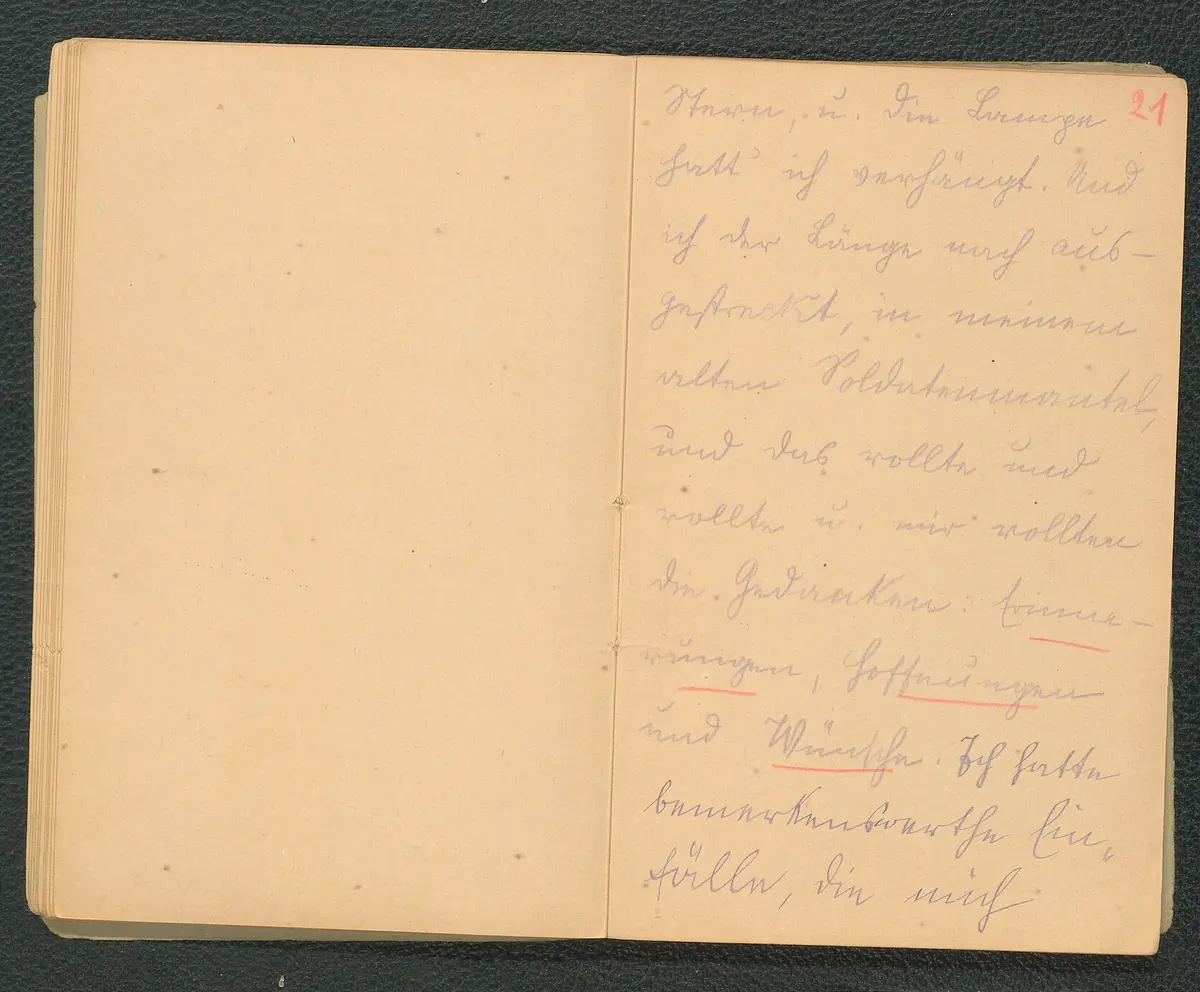 21
Stern, u. die Lampe
hatt' ich verhängt. Und
ich der Länge nach aus-
gestreckt, in meinem
alten Soldatenmantel,
und das rollte und
rollte u. mir rollten
die Gedanken: Erinne-
rungen, Hoffnungen
und Wünsche. Ich hatte
bemerkenswerthe Ein-
fälle, die mich